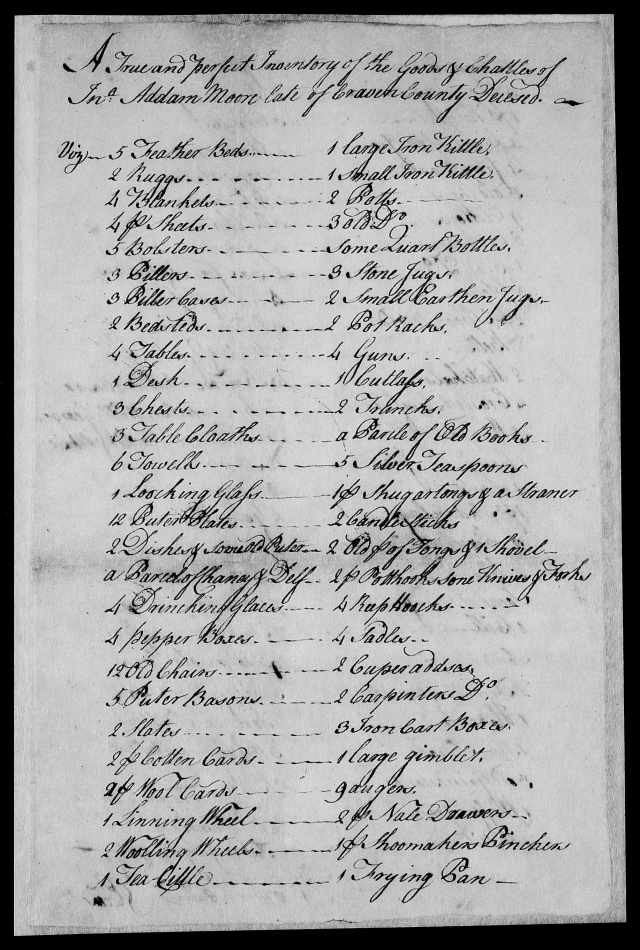 A True and perfect Inventory of the Goods & Chattles of
Jnº Addam Moore late of Craven County Decesed.
Viz 5 Feather Beds 1 large Iron Kittle.
2 Ruggs 1 small Iron Kittle.
4 Blankets 2 Potts
4 pr Sheets 3 old Do.
5 Bolsters Some Quart Bottles.
3 Pillers 3 Stone Jugs.
3 Piller Cases 2 Small Earthen Jugs.
2 Bedsteds 2 Pot Racks.
4 Tables 4 Guns.
1 Desk 1 Cutlass.
3 Chests 2 Trunks.
3 Table Cloaths a Parcle of Old Books
6 Towells 5 Silver Teaspoons
1 Loocking Glass 1 pr Shugartongs & a Straner
12 Puter Plates 2 Candlesticks
2 Dishes & some old Puter 2 Old pr of Tongs & 1 Shovel
a Parcel of Chaney & Delf 2 pr Potthooks some Knives & Forks
4 Drincking Glaces 4 Reap Hoocks
4 pepper Boxes 4 Sadles
12 Old Chairs 2 Cuper addses.
5 Puter Basons 2 Carpinters Do.
2 Slates 3 Iron Cart Boxes.
2 pr Cotten Cards 1 large gimblet.
2 pr Wool Cards 9 augers.
1 Linning Wheel 2 pr Nale Drawers
2 Woolling Wheels 1 pr Shoomakers Pinchers
1 Tea Cittle 1 Frying Pan